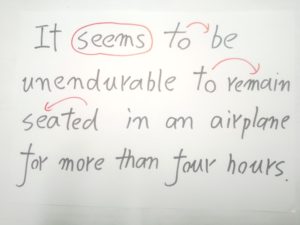 It seems to be
unendurable to remain
seated in an airplane
for more than four hours.